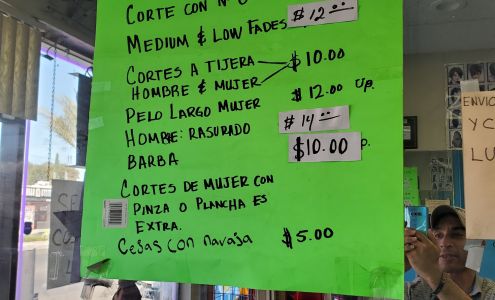 CORTE CON Nº
$12.00
MEDIUM & LOW FADES
CORTES A TIJERA
HOMBRE & MUJER
$10.00
PELO LARGO MUJER
$12.00 up.
HOMBRE: RASURADO
$14.00
BARBA
$10.00 p.
CORTES DE MUJER CON
PINZA O PLANCHA ES
EXTRA.
CEJAS CON NAVAJA $5.00
ENVIO
Y C
LU